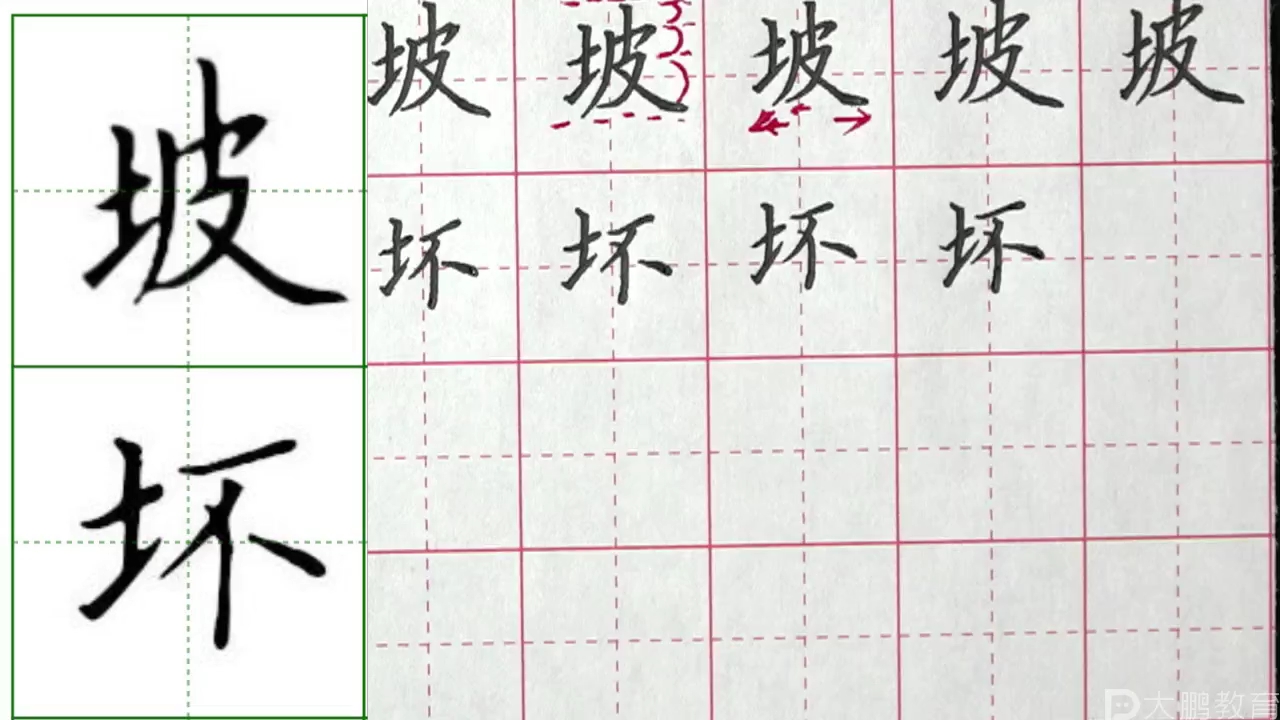 坡
坏
坡 坡 坡 坡 坡
坏 坏 坏 坏
大鹏教育